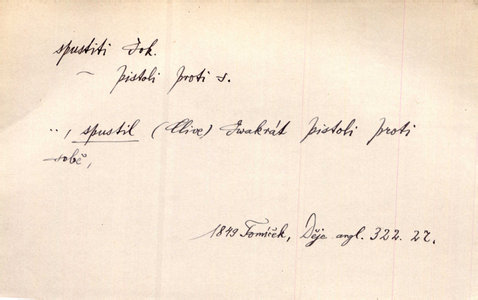 spustiti dok.
~ pistoli proti s.
.., spustil (Clive) dwakrát pistoli proti
sobě,
1849 Tomíček, Děje angl. 322. 27.